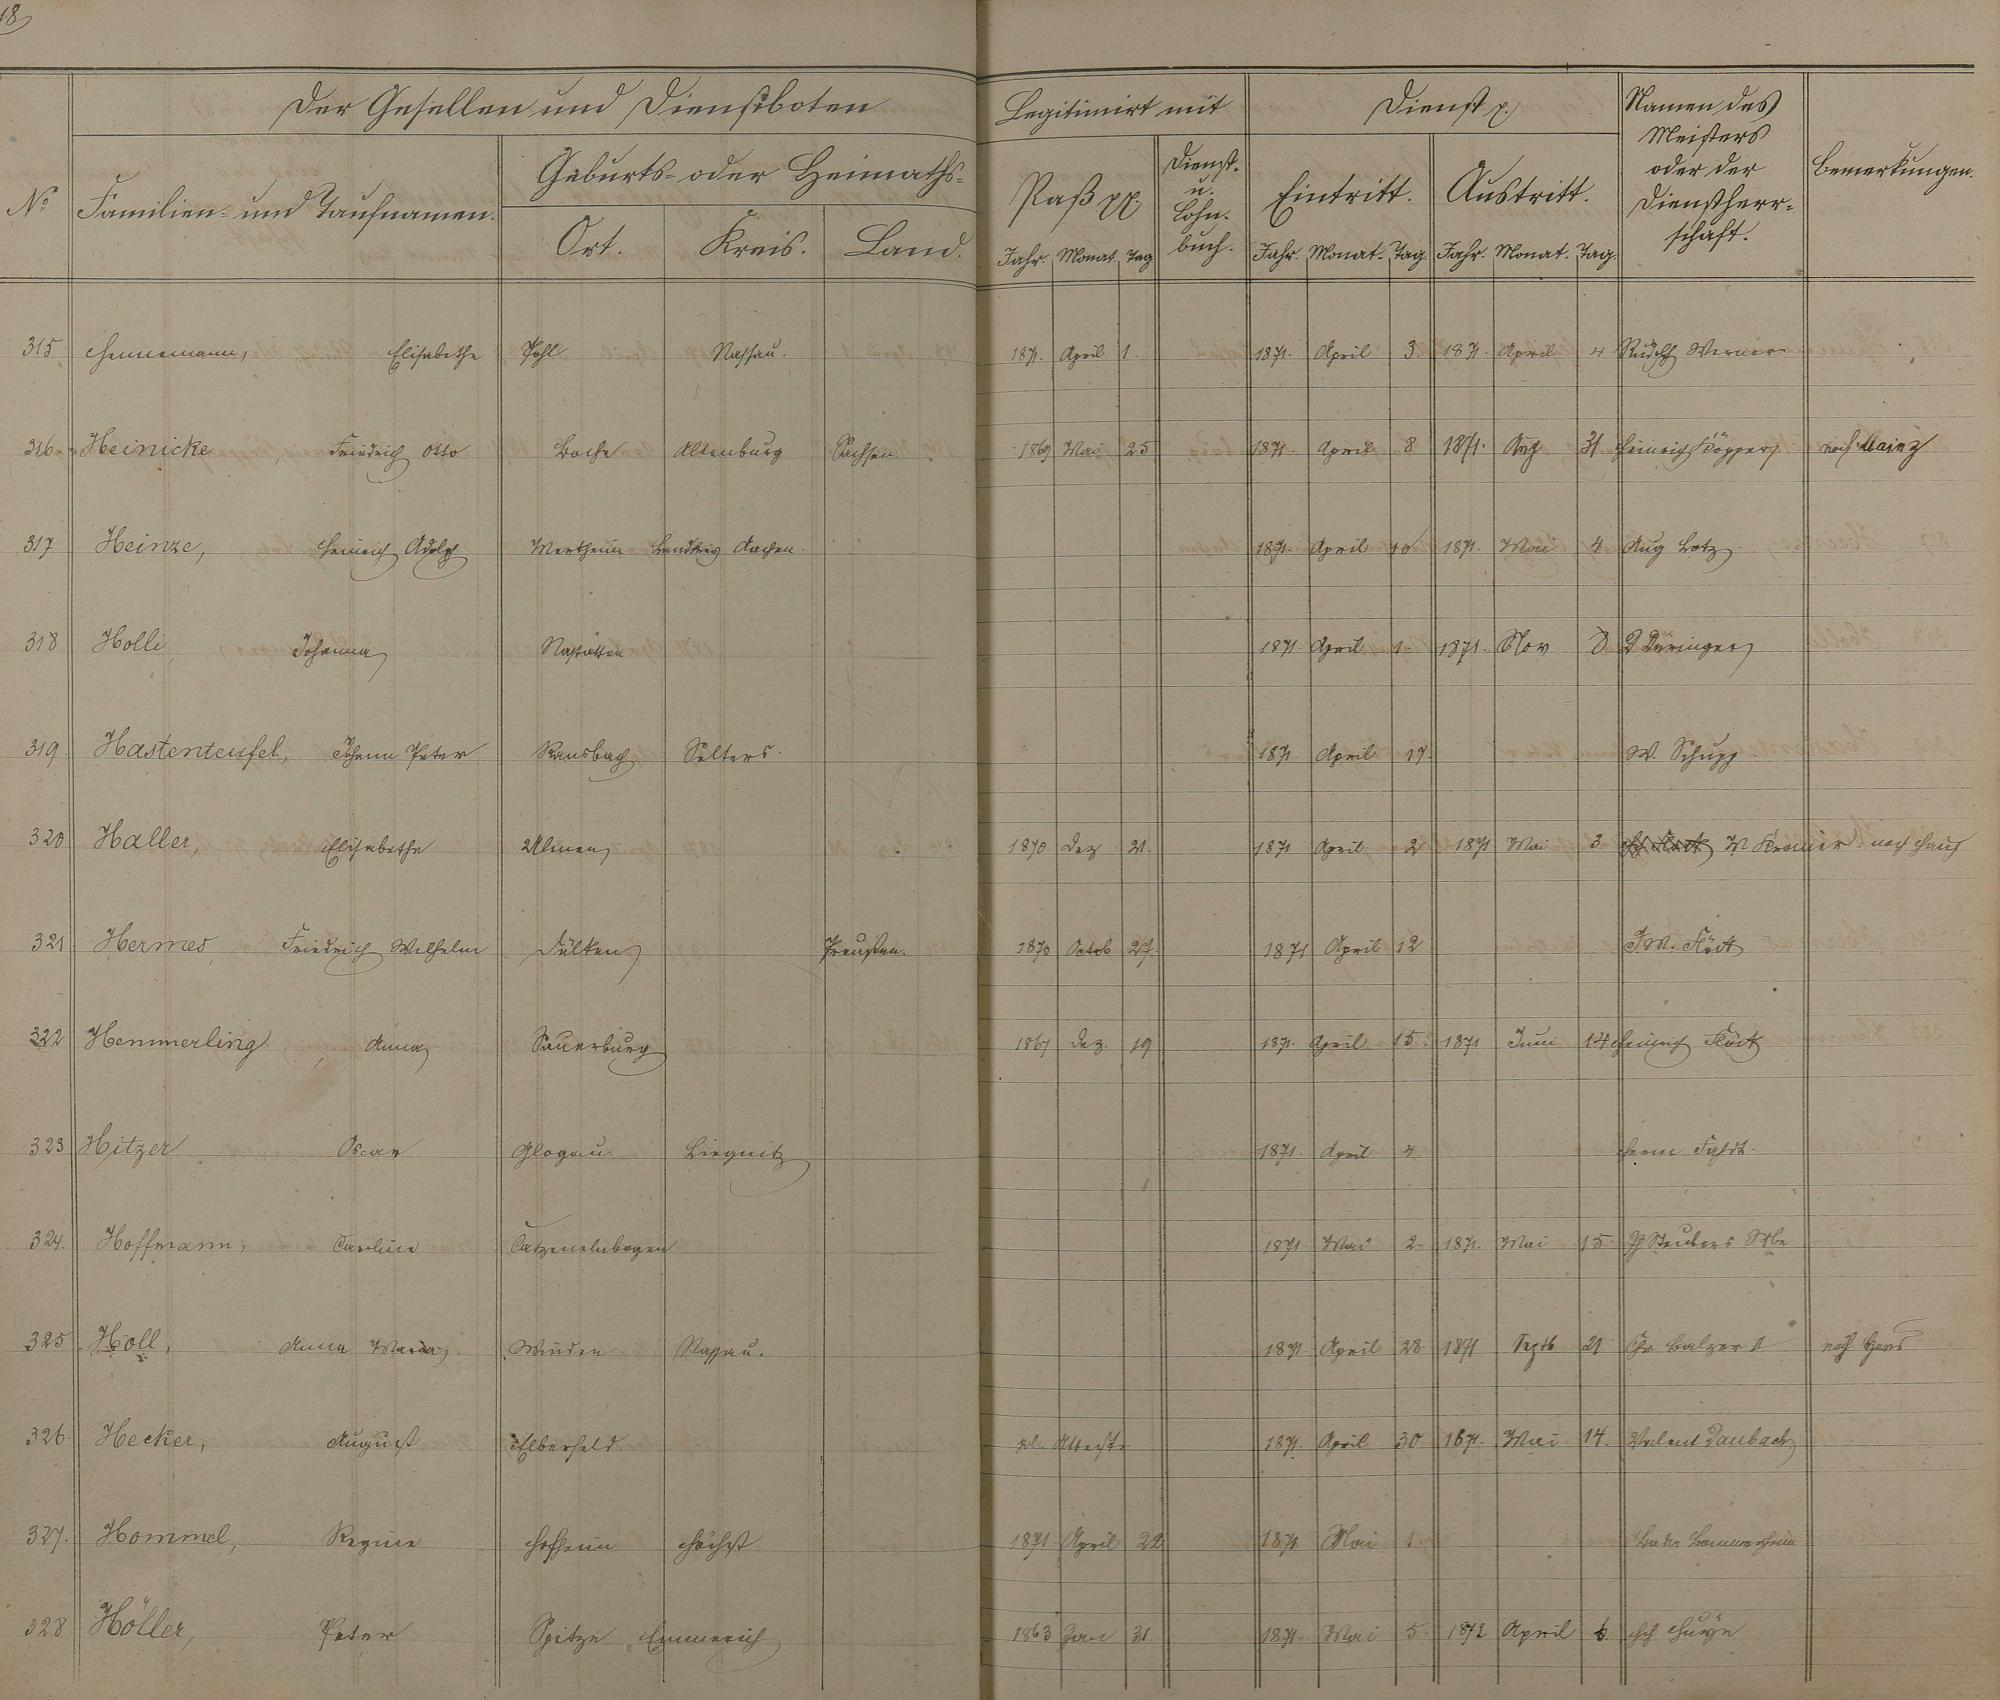 18
Der Gesellen und Dienstboten
Legitimirt mit
Dienst p.
Namen des Meisters oder der Dienstherrschaft.
Bemerkungen.
No
Familien- und Taufnamen.
Geburts- oder Heimaths-
Ort. Kreis. Land.
Paß pp.
Dienst- u. Lohn- buch.
Eintritt. Austritt.
Jahr. Monat Tag Jahr. Monat. Tag. Jahr. Monat. Tag.
315 Hennemann, Elisabethe Pohl Nassau. 1871. April 1. 1871. April 3. 1871. April 4 Rudolf Werner
316 Heinicke, Friedrich Otto Altenburg Sachsen. 1869 Mai 25 1871. April 8 1871. Aug 31 Heinrich Küpper nach Mainz
317 Heinze, Heinrich Adolph Landkreis Aachen. 1871. April 10 1871. Mai 4 Aug Lotz
318 Holli, Johanna Nastätten 1871. April 1. 1871. Nov 8 Düringer
319. Hastenteufel, Johann Peter Ransbach Selters. 1871. April 17. W. Schupp
320 Haller, Elisabethe Ulmen 1870 Dez 21. 1871 April 2 1871 Mai 3 W Kremer nach Haus
321 Hermes, Friedrich Wilhelm Dülken Preußen. 1870 Octob 27. 1871 April 12 J. W. Flöck
322 Hemmerling, Anna Sauerburg 1867 Dez. 19 1871. April 15. 1871 Juni 14 Heinrich Flöck
323 Hitzer Oscar Glogau Liegnitz 1871. April 4 Herm
324. Hoffmann, Caroline Catzenelnbogen 1871. Mai 2. 1871. Mai 15. Steubers Wbe
325 Holl, Anna Maria Winden Nassau. 1871. April 28. 1871 Septb 21 Chr Balzer nach Haus
326. Hecker, August Elberfeld. Attest. 1871. April 30 1871. Mai 14. Valent Daubach
327. Hommel, Regine Hofheim Höchst 1871 April 22 1871 Mai 1
328 Höller, Peter Spitze Emmerich 1863 Jan 31. 1871. Mai 5. 1872 April 6.